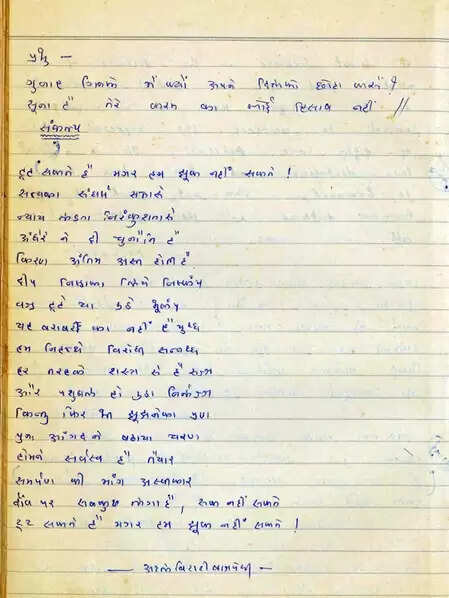 પ્રભુ –
ગુનાહ ગિનકે મેં ક્યોં અપને દિલકો છોટા કરું ?
સુના હૈ તેરે કરમ કા કોઈ હિસાબ નહીં //
સંકલ્પ
ટૂટ સકતે હૈં મગર હમ ઝુક નહીં સકતે !
સત્યકા સંઘર્ષ સત્તાસે
ન્યાય લડતા નિરંકુશતાસે
અંધેરે ને દી ચુનૌતિ હૈ
કિરણ અંતિમ અસ્ત હોતી હૈ
દીપ નિષ્ઠાકા લિયે નિષ્કંપ
વજ્ર ટૂટે યા ઉઠે ભૂકંપ
યહ બરાબરી કા નહીં હૈ યુધ્ધ
હમ નિહત્થે વિરોધી સન્નધ્ધ
હર તરહકે શસ્ત્ર સે હૈ સજ્જ
ઔર પશુબલ હો ઉઠા નિર્લજ્જ
કિન્તુ ફિર ભી ઝુઝનેકા પ્રણ
પુનઃ અંગદને બઢાયા ચરણ
હોમને સર્વસ્વ હૈં તૈયાર
સમર્પણ કી માંગ અસ્વીકાર
દાંવ પર સબકુછ લગા હૈ, રૂક નહીં સકતે
ટૂટ સકતે હૈં મગર હમ ઝુક નહીં સકતે !
— અટલ બિહારી બાજપેયી —